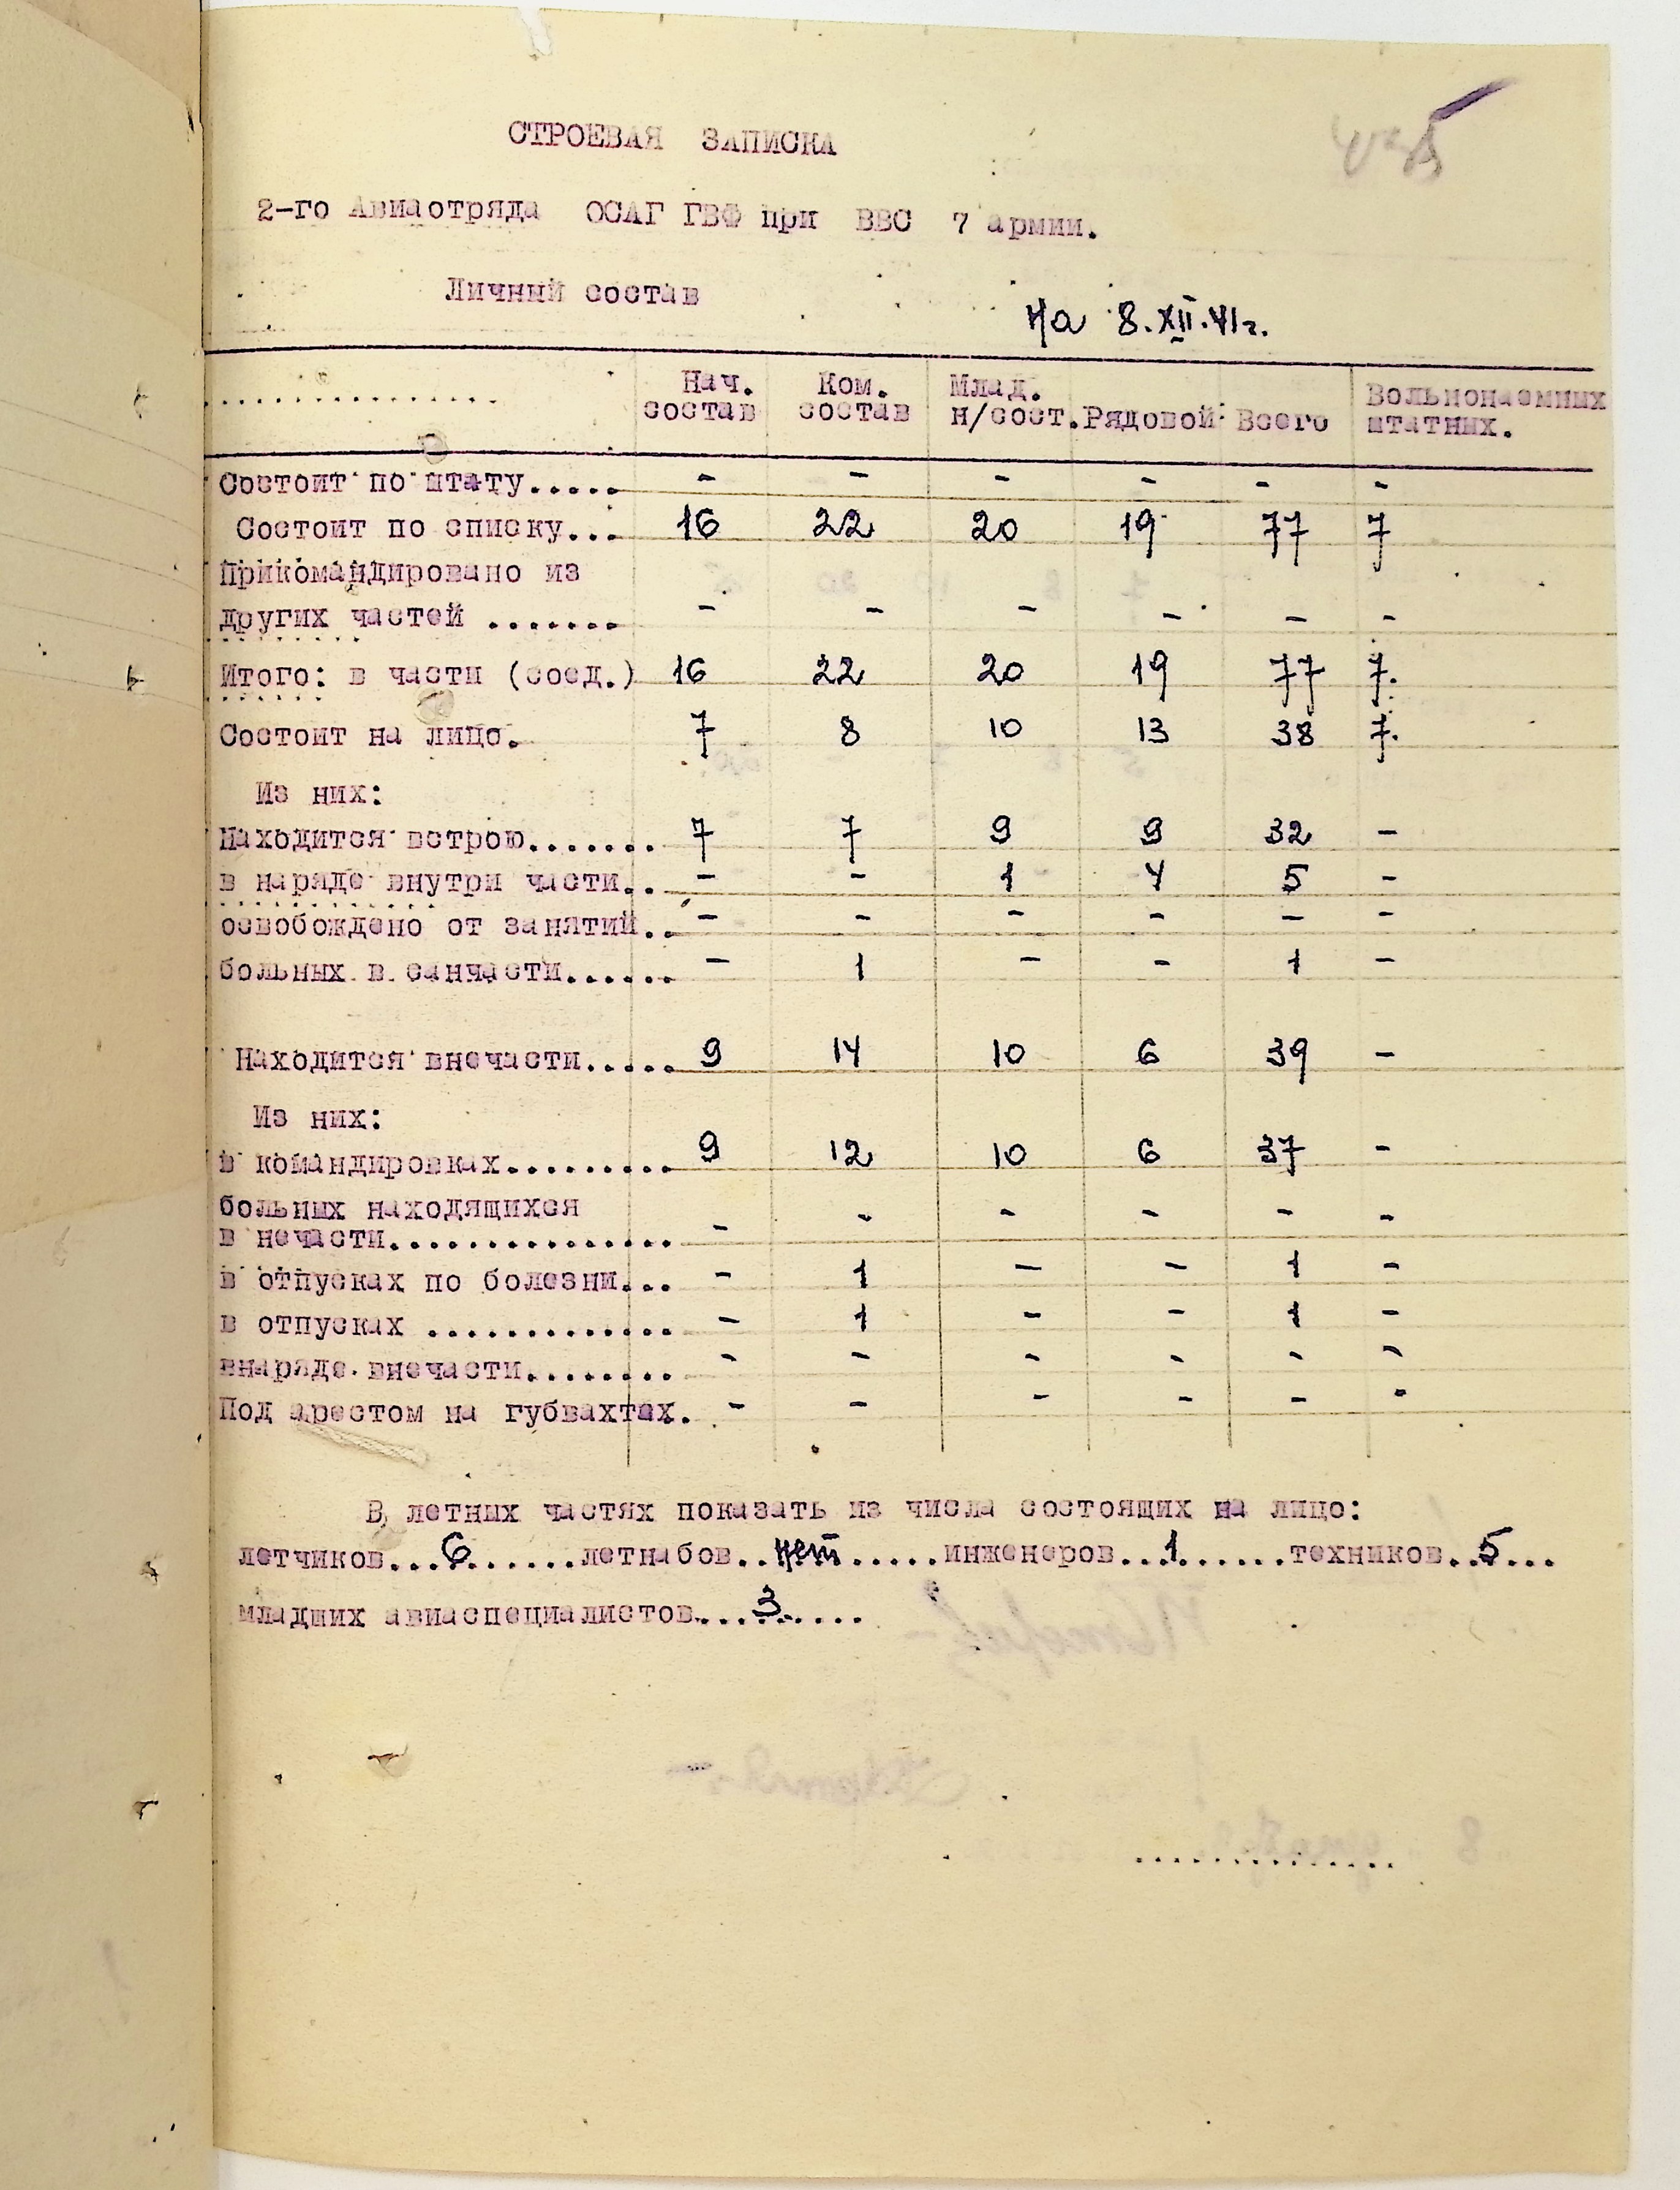 СТРОЕВАЯ ЗАПИСКА
2-го Авиаотряда ОСАГ ГВФ при ВВС 7 армии.
Личный состав
на 8.XII.41г.
................ Нач. состав Ком. состав Млад. н/сост. Рядовой Всего Вольнонаемных штатных.
Состоит по штату..... - - - - - -
Состоит по списку... 16 22 20 19 77 7
Прикомандировано из
других частей ....... - - - - - -
Итого: в части (соед.) 16 22 20 19 77 7.
Состоит на лицо. 7 8 10 13 38 7.
Из них:
Находится встрою....... 7 7 9 9 32 -
в наряде внутри части.. - - 1 4 5 -
освобождено от занятий.. - - - - - -
больных в санчасти...... - 1 - - 1 -
Находится внечасти..... 9 14 10 6 39 -
Из них:
в командировках......... 9 12 10 6 37 -
больных находящихся
в нечасти............... - - - - - -
в отпусках по болезни... - 1 - - 1 -
в отпусках ............. - 1 - - 1 -
внаряде внечасти........ - - - - - -
Под арестом на губвахтах. - - - - - -
В летных частях показать из числа состоящих на лицо:
летчиков...6......летнабов..нет.....инженеров...1......техников..5...
младших авиаспециалистов....3.....
..............